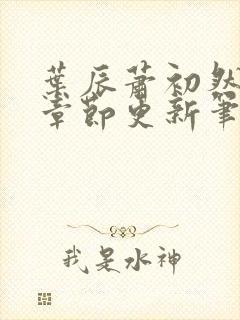 葉辰蕭初然
章節更新筆
我是水神